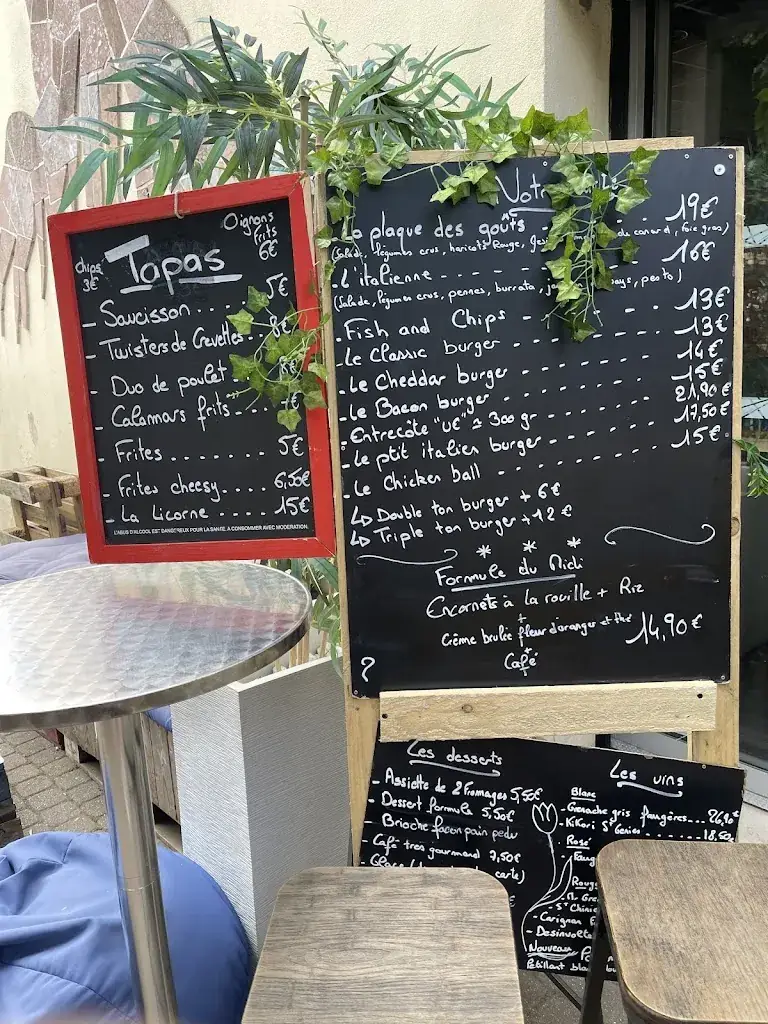 Oignons
frits
6€
chips
3€
Tapas
- Saucisson.... 5€
- Twisters de Crevettes. 8€
- Duo de poulet.
- Calamars frits..
- Frites...... 5€
- Frites cheesy.... 6,50€
- La Licorne.... 15€
L'ABUS D'ALCOOL EST DANGEREUX POUR LA SANTÉ, A CONSOMMER AVEC MODERATION.
La plaque des goûts - - 19€
(Salade, légumes crus, haricots Rouge, du canard, foie gras)
- L'italienne - - - - - - - 16€
(Salade, légumes crus, pennes, burrata, pesto)
- Fish and Chips - - - - 13€
- Le Classic burger - - - - - - 13€
- Le Cheddar burger - - - - - - 14€
- Le Bacon burger - - - - - - 15€
- Entrecôte "UE" ≈ 300 gr - - - - - 21,90€
- Le ptit italien burger - - - - - - 17,50€
- Le Chicken ball - - - - - - - 15€
↳ Double ton burger + 6€
↳ Triple ton burger + 12€
* * *
Formule du Midi
Encornets à la rouille + Riz
+
Crème brulée fleur d'oranger et thé 14,90€
+
Café
?
Les desserts
- Assiette de 2 Fromages 5,55€
- Dessert formule 5,50€
- Brioche facon pain perdu
- Café très gourmand 7,50€
carte)
Les vins
Blanc
- Grenache gris faugères... 26,90€
- Kikori St Genies....... 18,50
Rosé
- Faug
Rouge
- St Chinia
- Carignan
- Desinvolte
Nouveau
Pétillant blanc